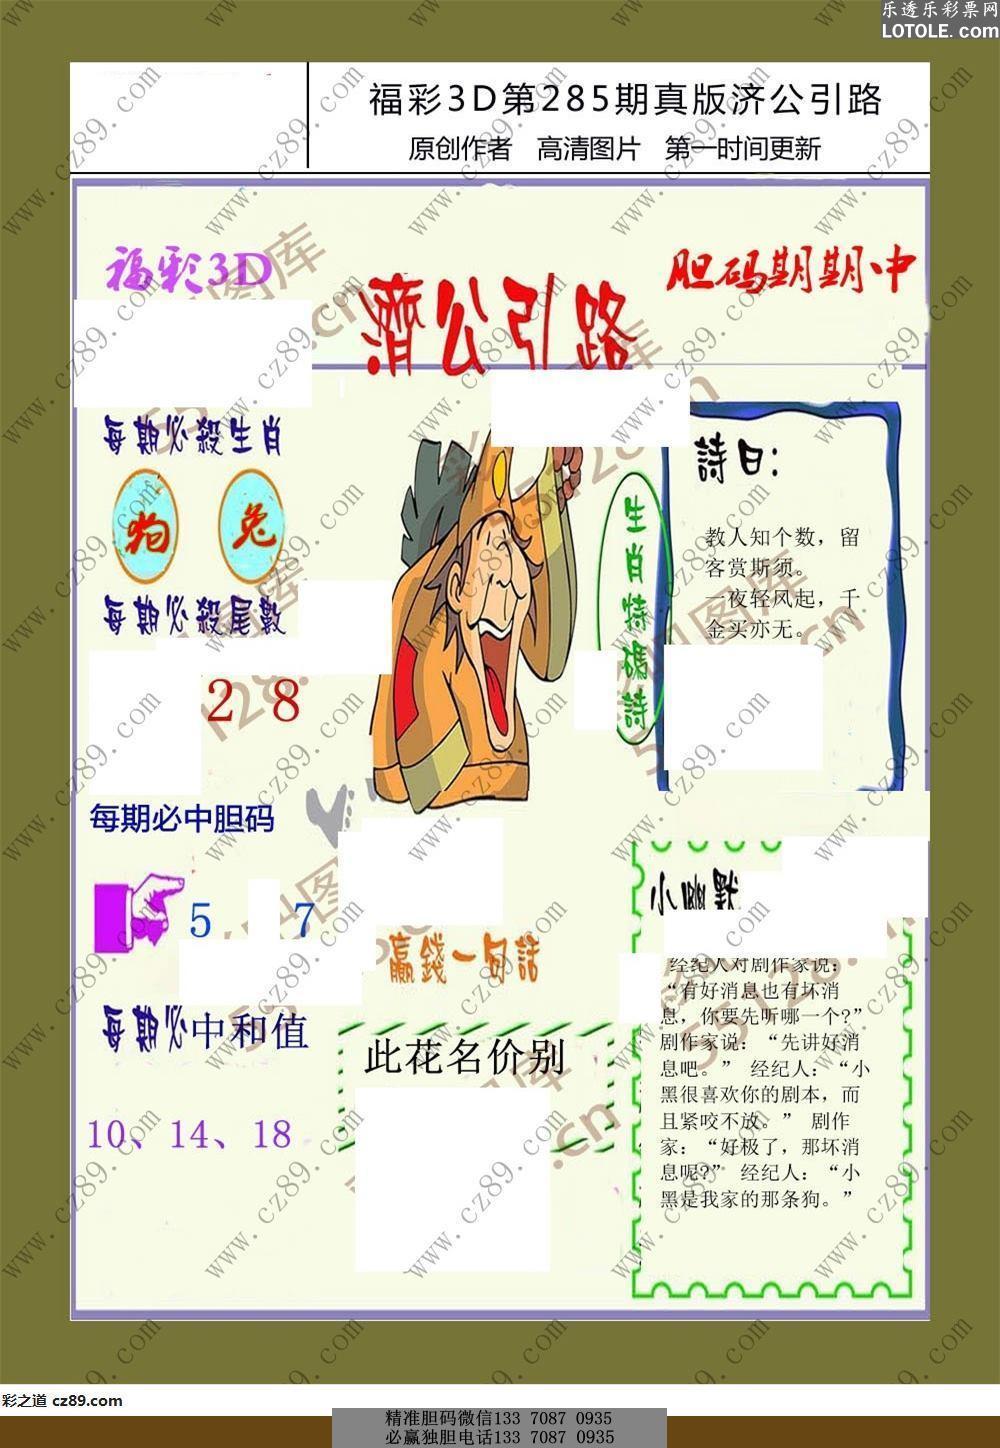 乐透乐彩票网
LOTOLE.com
福彩3D第285期真版济公引路
原创作者 高清图片 第一时间更新
福彩3D
濟公引路
胆码期期中
每期必殺生肖
狗 兔
每期必殺尾數
2 8
每期必中胆码
5 7
每期必中和值
10、14、18
生肖特碼詩
詩曰：
教人知个数，留
客赏斯须。
一夜轻风起，千
金买亦无。
赢錢一句話
此花名价别
小幽默
经纪人对剧作家说：
“有好消息也有坏消
息，你要先听哪一个?”
剧作家说：“先讲好消
息吧。” 经纪人：“小
黑很喜欢你的剧本，而
且紧咬不放。” 剧作
家：“好极了，那坏消
息呢?” 经纪人：“小
黑是我家的那条狗。”
www.cz89.com
彩之道 cz89.com
精准胆码微信133 7087 0935
必赢独胆电话133 7087 0935